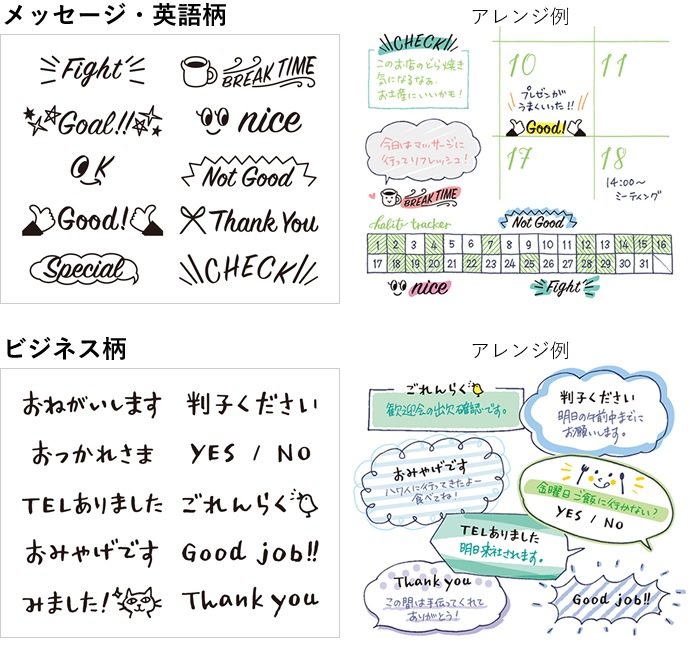 メッセージ・英語柄
Fight
BREAK TIME
Goal!!
nice
OK
Not Good
Good!
Thank You
Special
CHECK
アレンジ例
CHECK
このお店のどら焼き
気になるなぁ。
お土産にいいかも!
10
11
プレゼンが
うまくいった!!
Good!
今日はマッサージに
行ってリフレッシュ!
17
18
14:00～
ミーティング
BREAK TIME
habit tracker
Not Good
1 2 3 4 5 6 7 8 9 10 11 12 13 14 15 16
17 18 19 20 21 22 23 24 25 26 27 28 29 30 31
nice
Fight
ビジネス柄
おねがいします
判子ください
おつかれさま
YES / NO
TELありました
ごれんらく
おみやげです
Good job!!
みました!
Thank you
アレンジ例
ごれんらく
歓迎会の出欠確認です。
判子ください
明日の午前中までに
お願いします。
おみやげです
ハワイに行ってきたよー
食べてね!
金曜日ご飯に行かない?
YES / NO
TELありました
明日来社されます。
Thank you
この間は手伝ってくれて
ありがとう!
Good job!!